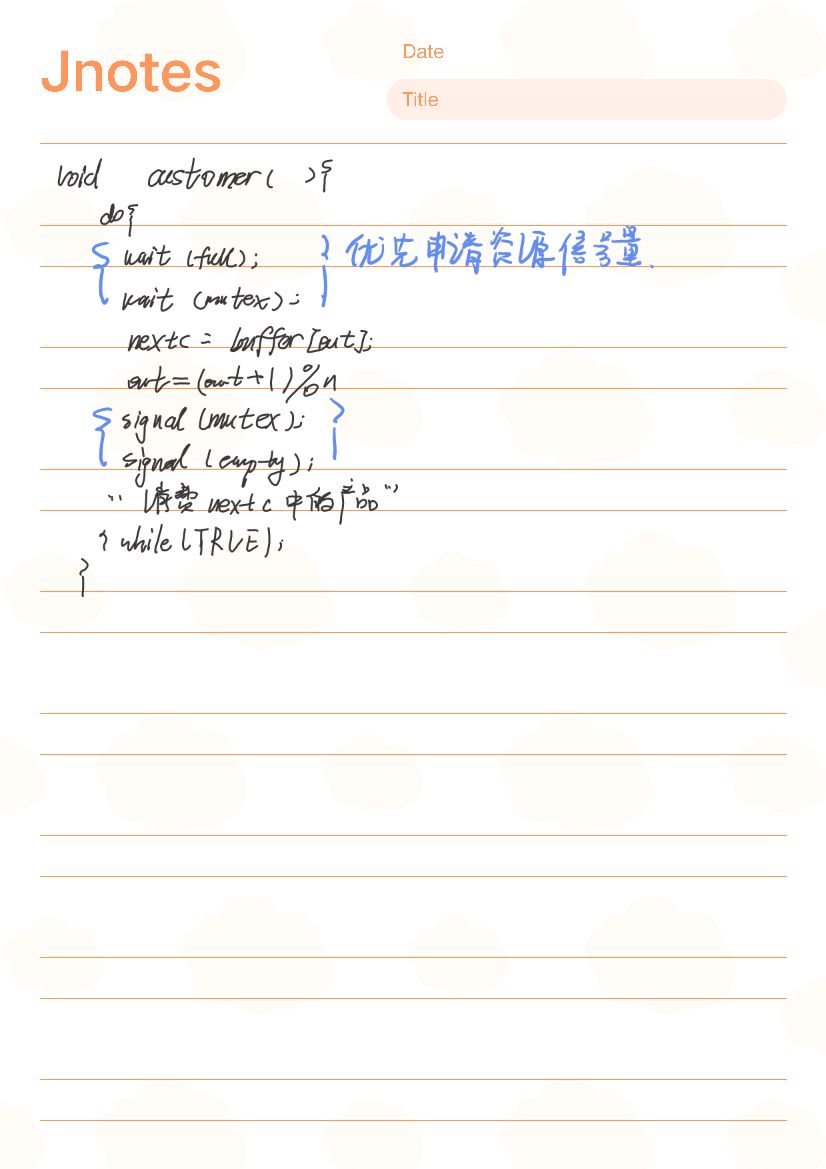 Jnotes
Date
Title
void customer( ){
do{
wait (full); 优先申请资源信号量.
wait (mutex);
nextc = buffer[out];
out=(out+1)%n
signal (mutex);
signal (empty);
“消费 nextc 中的产品”
} while(TRUE);
}